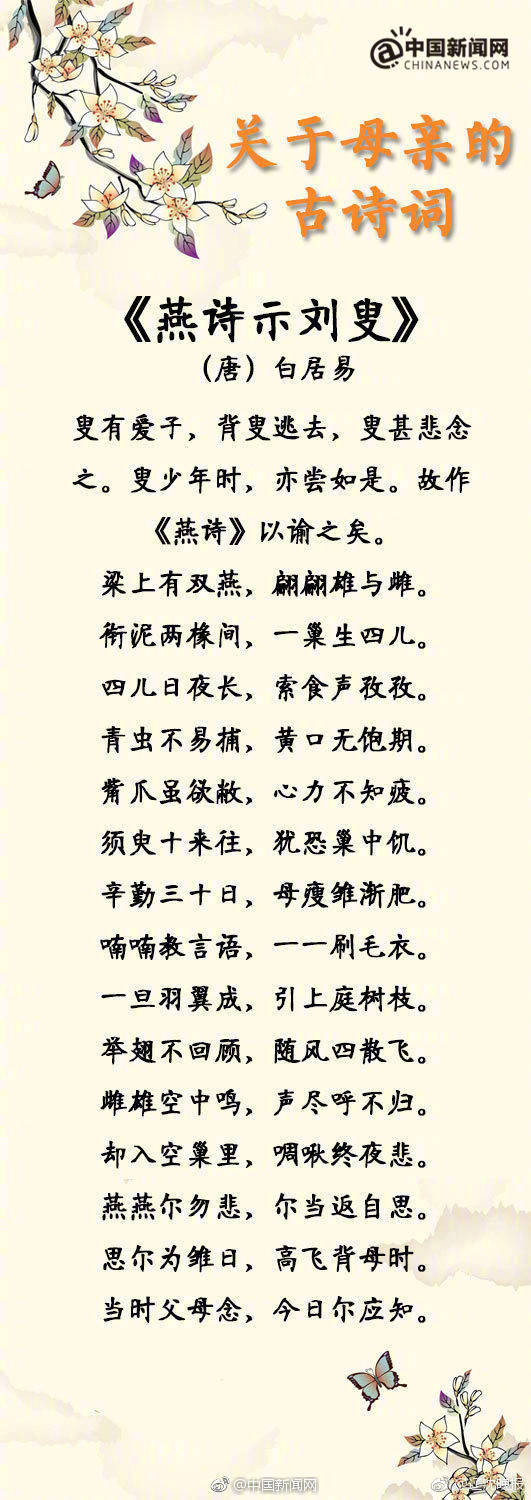 @中国新闻网
CHINANEWS.COM
关于母亲的
古诗词
《燕诗示刘叟》
（唐）白居易
叟有爱子，背叟逃去，叟甚悲念
之。叟少年时，亦尝如是。故作
《燕诗》以谕之矣。
梁上有双燕，翩翩雄与雌。
衔泥两椽间，一巢生四儿。
四儿日夜长，索食声孜孜。
青虫不易捕，黄口无饱期。
觜爪虽欲敝，心力不知疲。
须臾十来往，犹恐巢中饥。
辛勤三十日，母瘦雏渐肥。
喃喃教言语，一一刷毛衣。
一旦羽翼成，引上庭树枝。
举翅不回顾，随风四散飞。
雌雄空中鸣，声尽呼不归。
却入空巢里，啁啾终夜悲。
燕燕尔勿悲，尔当返自思。
思尔为雏日，高飞背母时。
当时父母念，今日尔应知。
@中国新闻网